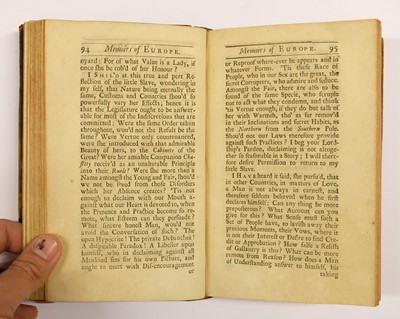 94 Memoirs of EUROPE.
nyard: For of what Value is a Lady, if
once she be rob'd of her Honour?
I SMIL'D at this true and pert Re-
flection of the little Slave, wondering in
my self, that Nature being eternally the
same, Customs and Countries shou'd so
powerfully vary her Effects; hence it is
that the Legislature ought to be answer-
able for most of the Indiscretions that are
committed: Were the same Order taken
throughout, wou'd not the Result be the
same? Were Vertue only countenanced,
were she introduced with that admirable
Beauty of hers, to the Cabinets of the
Great? Were her amiable Companion Cha-
stity receiv'd as an unalterable Principle
into their Ruels? Were she more than a
Name amongst the Young and Fair, shou'd
we not be freed from those Disorders
which her Absence creates? 'Tis not
enough to declaim with our Mouth a-
gainst what our Heart is devoted to, when
the Pretence and Practice become so re-
mote, what Esteem can they persuade?
What sincere honest Man, wou'd not
avoid the Conversation of such? The
open Hypocrite! The private Debauchee!
A despicable Paradox! A Libeller upon
himself, who in declaiming against all
Mankind sits for his own Picture, and
ought to meet with Dis-encouragement
or
Memoirs of EUROPE. 95
or Reproof where-ever he appears and in
whatever Forms. 'Tis these Race of
People, who in our Sex are the great, the
secret Corrupters, who admire and seduce.
Amongst the Fair, there are also to be
found of the same Specie, who scruple
not to act what they condemn, and think
'tis Vertue enough, if they do but talk of
her with Warmth, tho' as far remov'd
in their Inclinations and secret Habits, as
the Northern from the Southern Pole.
Shou'd not our Laws therefore provide
against such Practices? I beg your Lord-
ship's Pardon, declaiming is not altoge-
ther so seasonable in a Story; I will there-
fore desire Permission to return to my
little Slave.
I HAVE heard it said, she pursu'd, that
in other Countries, in matters of Love,
a Man is not always in earnest, and
therefore seldom believed when he first
declares himself; Can any thing be more
preposterous? What Account can you
give for this? What Sense must such a
Set of People have, to lavish away their
precious Moments, their Vows, where it
is not their Interest or Desire to find Cre-
dit or Approbation? How false a Relish
of Gallantry is this? What can be more
remote from Reason? How does a Man
of Understanding answer to himself, his
taking